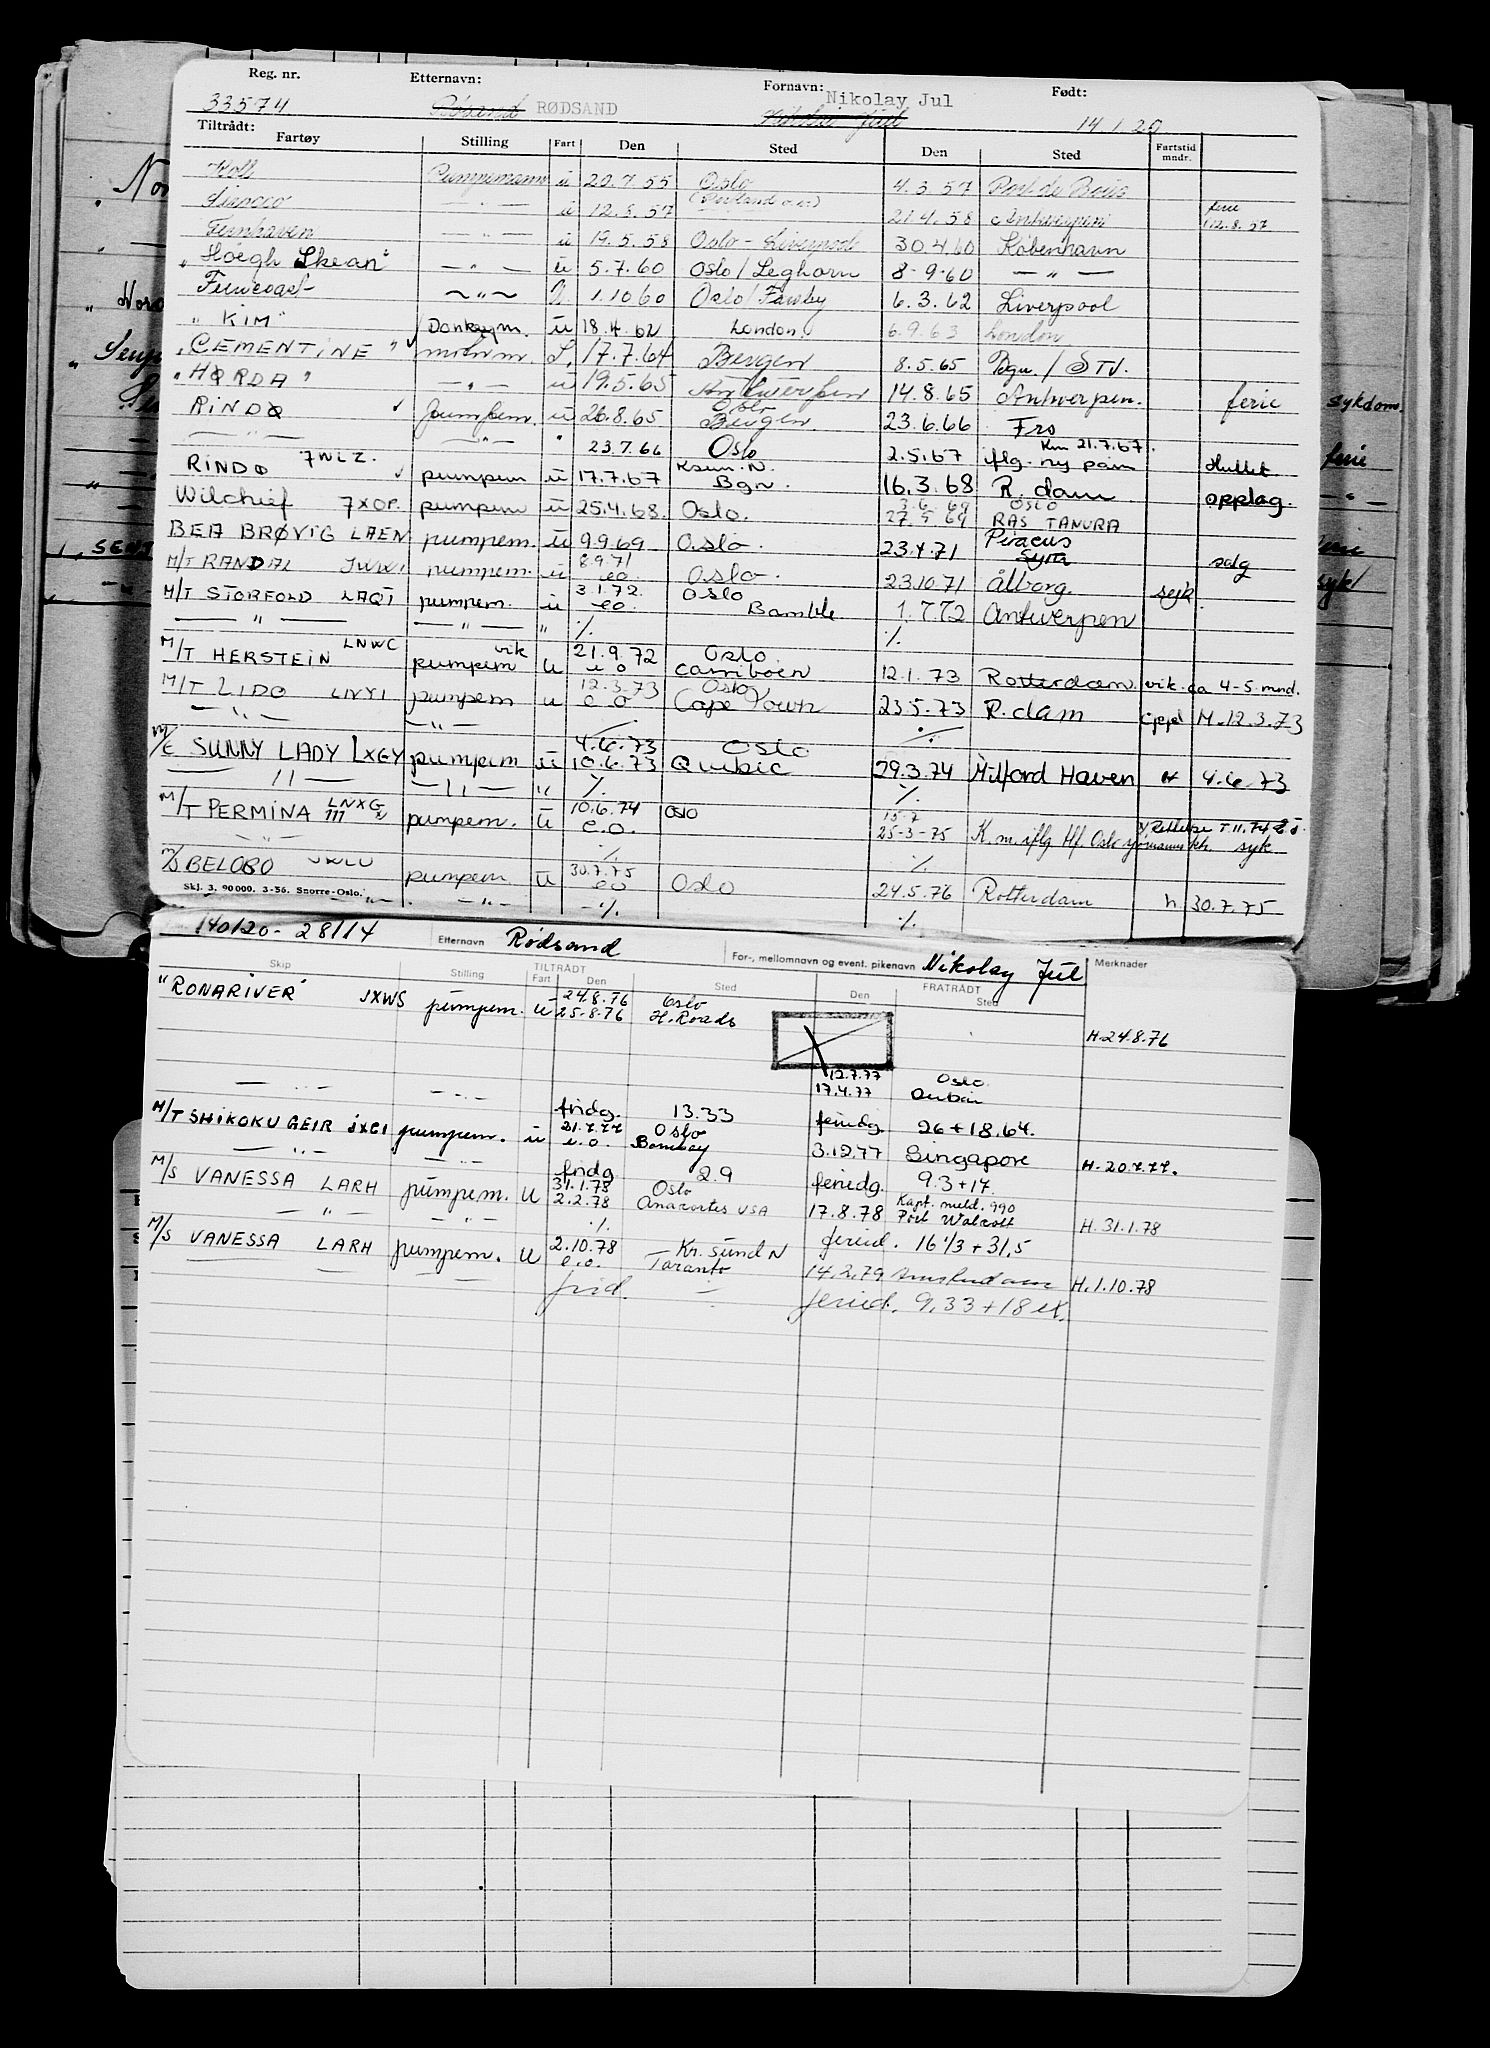 Reg. nr. Etternavn: Fornavn: Født:
33574 RØDSAND Nikolay Jul 14 1 20
Tiltrådt:
Fartøy Stilling Fart Den Sted Den Sted Fartstid mndr.
Koll Pumpemann u 20.7.55 Oslo 4.3.57 Port de Bouc
Sirocco — " — u 12.5.57 21.4.58 Antwerpen ferie 112.8.57
Fernhaven — " — u 19.5.58 Oslo - Liverpool 30 4 60 København
"Höegh Skean" — " — u 5.7.60 Oslo / Leghorn 8-9-60 — " —
— " — 1.10 60 Oslo / 6.3.62 Liverpool
"KIM" Donkeym. u 18.4.62 London. 6.9.63 London
"CEMENTINE" motorm. 17.7.64 Bergen 8.5.65 Bgn. /
"HØRDA" — " — u 19.5.65 Antwerpen 14.8.65 Antwerpen. ferie sykdom.
RINDØ pumpem. u 26.8.65 Oslo Bergen 23.6.66 Fro
— " — — " — " 23.7.66 Oslo 2.5.67 iflg. ny pam Km 21.7.67. ferie
RINDØ JWLZ. pumpem u 17.7.67 Ksun. N. Bgn. 16.3.68 R. dam opplag. — " —
Wilchief JXOP. pumpem u 25.4.68. Oslo. 3.6.69 OSLO
27 5 69 RAS TANURA
BEA BRØVIG LAEN pumpem. u 9.9.69 Oslo. 23.4.71 Piraeus Syra salg
M/T RANDAL pumpem. u 8.9.71 eo Oslo. 23.10.71 Ålborg. syk
M/T STORFOLD LAQT pumpem. u 3.1.72. eo Oslo Bamble 1.7.72 Antwerpen
— " — — " — " ./. ./.
M/T HERSTEIN LNWC vik pumpem u 21.9.72 u o Oslo Carriboen 12.1.73 Rotterdam. vik. ca 4-5. mnd.
M/T LIDO LNYI pumpem u 12.3.73 e o Oslo Cape Town 23.5.73 R. dam oppl H. 12.3.73
— " — — " — ./. ./.
M/T SUNNY LADY LXGY pumpem u 4.6.73 10.6.73 Oslo Quebic 29.3.74 Milford Haven H 4.6.73
— " — — " — " ./. ./.
M/T PERMINA III LNXG pumpem. u 10.6.74 e.o. OSLO 15-7 25-3-75 K.m. iflg Hf. Oslo syk
— " — ./. ./.
M/S BELOBO pumpem u 30.7.75 eo Oslo 24.5.76 Rotterdam h 30.7.75
Skj. 3. 90 000. 3-56. Snorre-Oslo. — " — — " — -./. ./.
140120 - 28114 Etternavn Rødsand For-, mellomnavn og event. pikenavn Nikolay Jul Merknader
TILTRÅDT FRATRÅDT
Skip Stilling Fart Den Sted Den Sted
"RONARIVER" JXWS pumpem. u 24.8.76 Oslo
25.8.76 H. Roads
H. 24.8.76
12.7.77 Oslo.
— " — — " — 17.4.77 Dubai
fridg. 13.33 feridg. 26 + 18.64.
M/T SHIKOKU GEIR JXCI pumpem. u 21.7.77 e.o. Oslo Bombay 3.12.77 Singapore H. 20.7.77.
— " — — " — fridg 2.9 feriedg. 9.3 + 17.
M/S VANESSA LARH pumpem. U 31.1.78 2.2.78 Oslo Anacortes USA 17.8.78 Kapt. meld. 990 Port Walcott H. 31.1.78
— " — — " — ./. feried. 16 1/3 + 31,5
M/S VANESSA LARH pumpem. U 2.10.78 e.o. Kr. Sund N Taranto 14.2.79 Amsterdam H. 1.10.78
— — — frid. — feried. 9,33 + 18 ex.